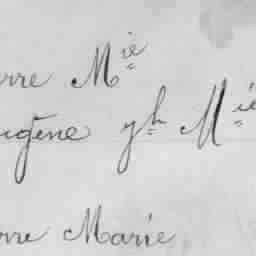 erre Mie
ugène yh Mie
erre Marie